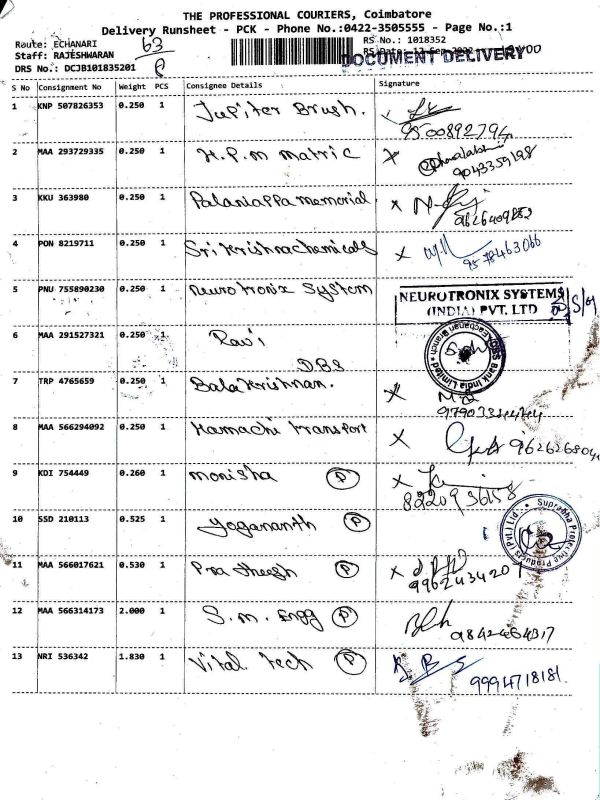 THE PROFESSIONAL COURIERS, Coimbatore
Delivery Runsheet - PCK - Phone No.:0422-3505555 - Page No.:1
Route: ECHANARI 63
RS No.: 1018352
Staff: RAJESHWARAN
DOCUMENT DELIVERY
DRS No.: DCJB101835201
S No Consignment No Weight PCS Consignee Details Signature
1 KNP 507826353 0.250 1 Jupiter Brush.
9500892794
2 MAA 293729335 0.250 1 H.P.M Matric
9043359198
3 KKU 363980 0.250 1 Palaniappa memorial
9626409852
4 PON 8219711 0.250 1 Sri Krishnachemicals
9578463066
5 PNU 755890230 0.250 1 Neurotronix System
NEUROTRONIX SYSTEMS
(INDIA) PVT. LTD
6 MAA 291527321 0.250 1 Ravi
DBS
DBS Bank India Limited
7 TRP 4765659 0.250 1 Balakrishnan.
8 MAA 566294092 0.250 1 Hamachi transport
9 KDI 754449 0.260 1 monisha P
8220936158
10 SSD 210113 0.525 1 Yogananth P
Suprabha Protective Products (Pvt.) Ltd.
11 MAA 566017621 0.530 1 Pratheesh P
9962434207
12 MAA 566314173 2.000 1 S.m. Engg P
9842464317
13 NRI 536342 1.830 1 Vital Tech P
9994718181.